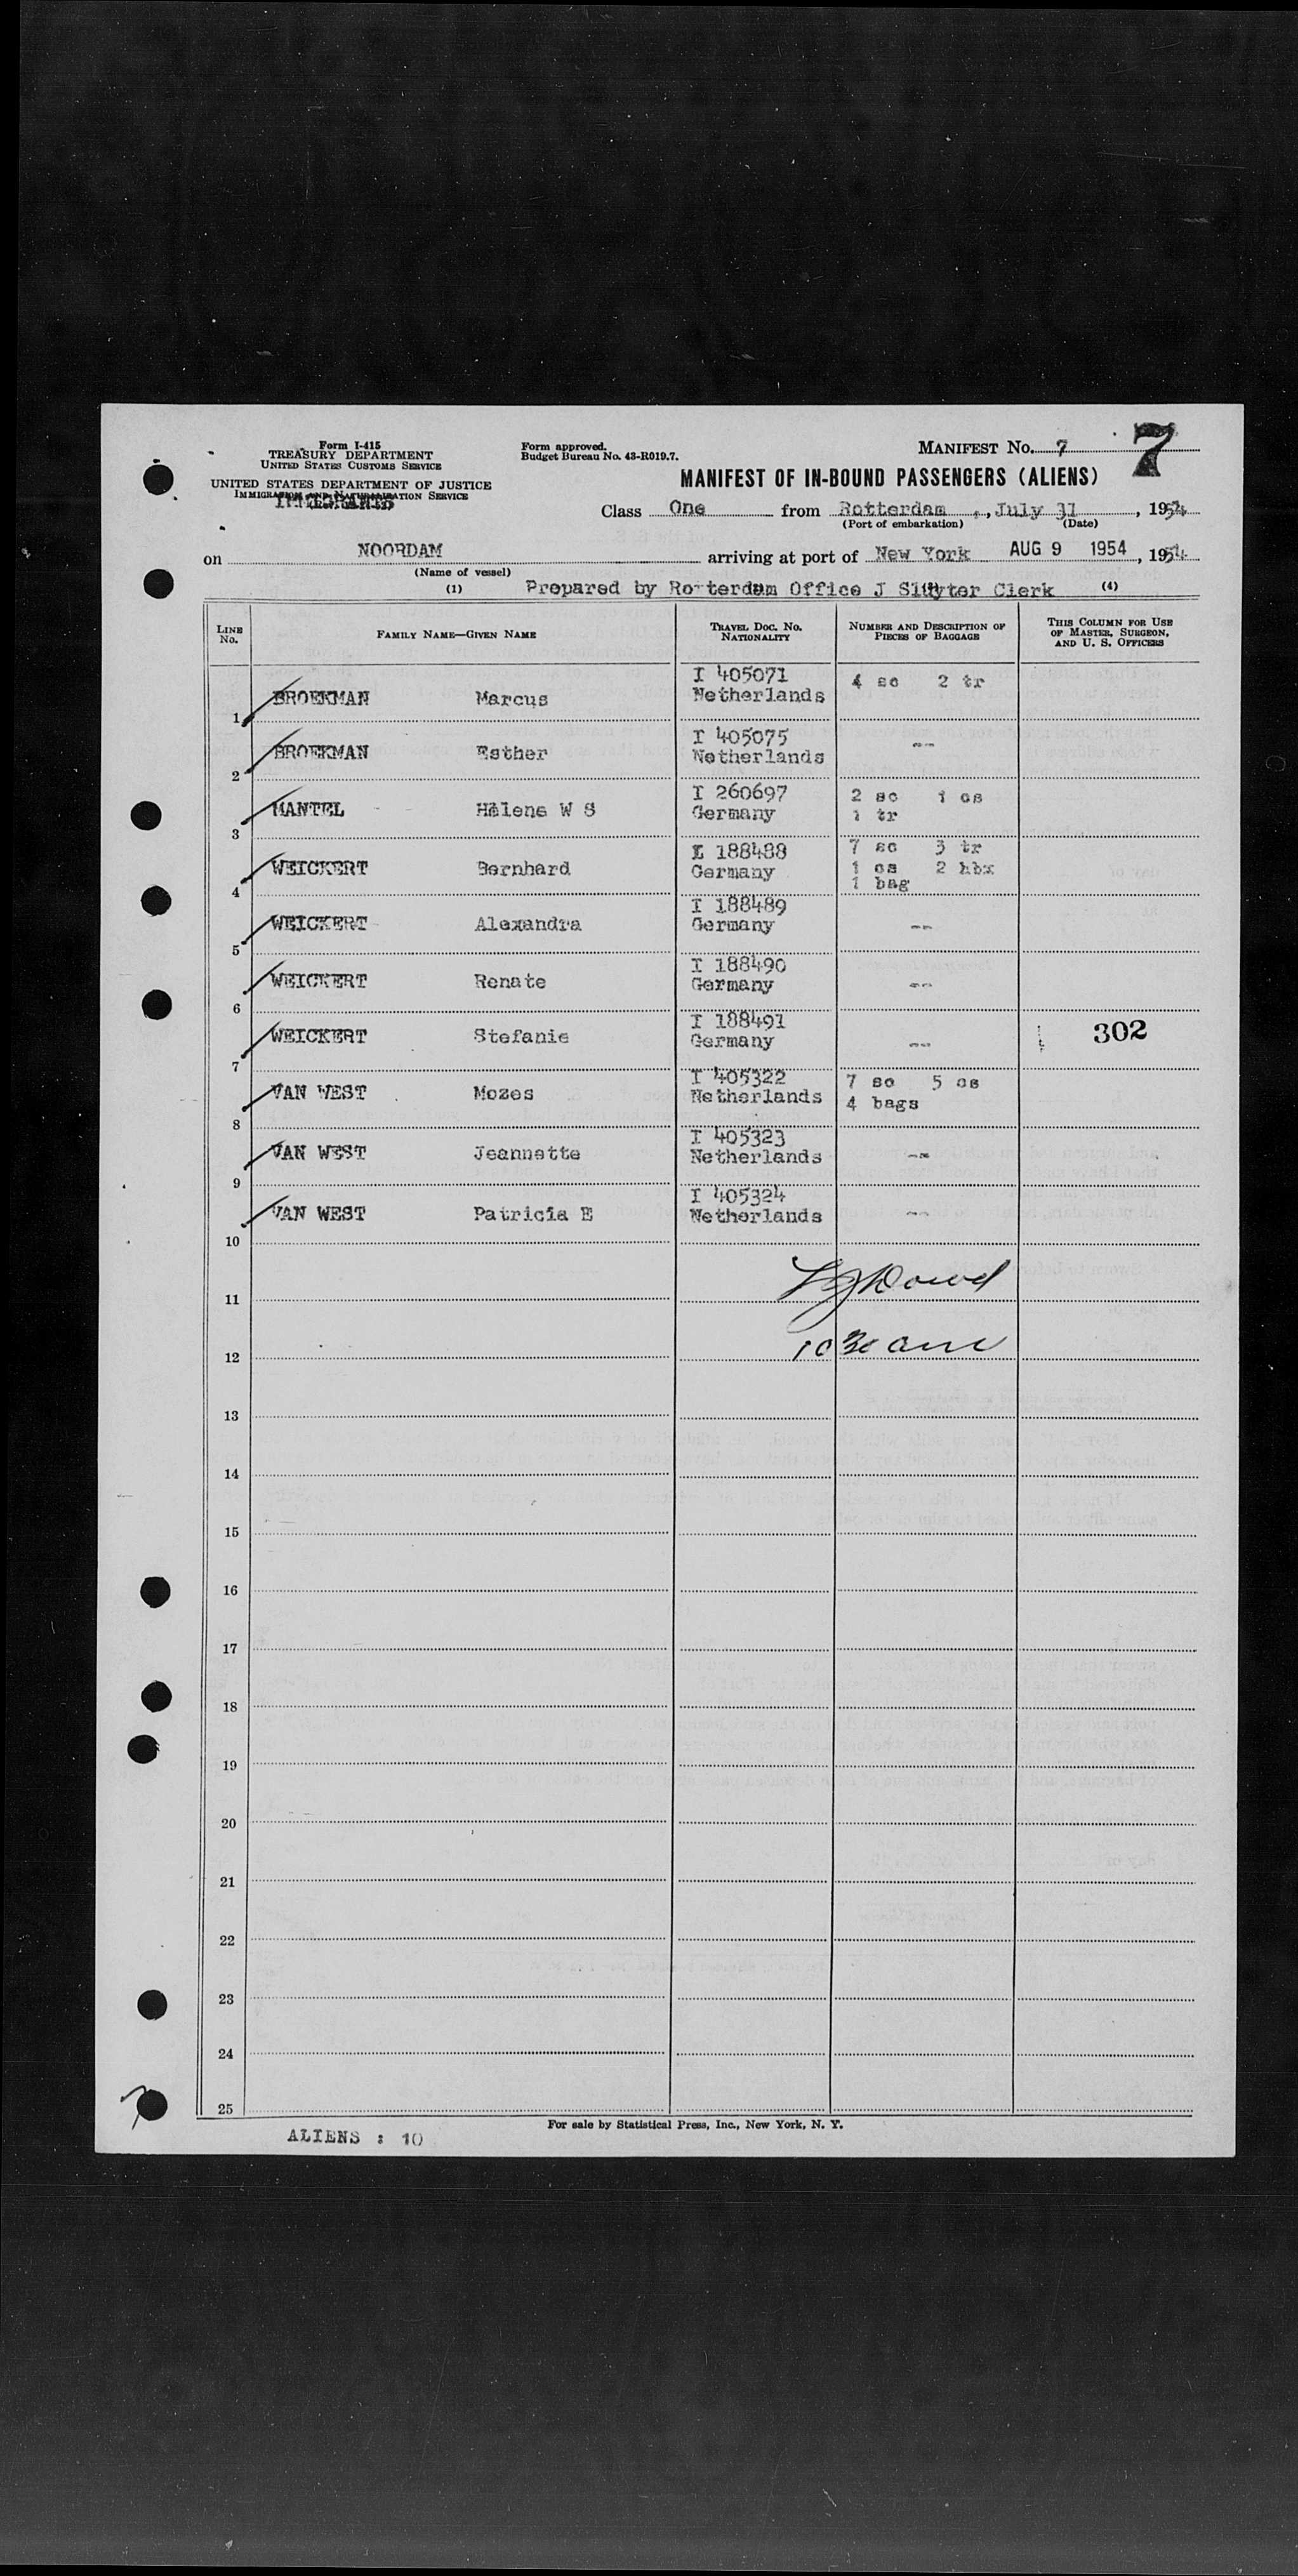 Form I-415
TREASURY DEPARTMENT
UNITED STATES CUSTOMS SERVICE
UNITED STATES DEPARTMENT OF JUSTICE
IMMIGRATION AND NATURALIZATION SERVICE
IMMIGRANTS
Form approved.
Budget Bureau No. 43-R019.7.
MANIFEST NO. 7
7
MANIFEST OF IN-BOUND PASSENGERS (ALIENS)
Class One from Rotterdam, July 31, 1954
(Port of embarkation) (Date)
on NOORDAM arriving at port of New York AUG 9 1954, 1954
(Name of vessel)
(1) Prepared by Rotterdam Office J Sluyter Clerk (4)
LINE No. FAMILY NAME—GIVEN NAME TRAVEL DOC. NO. NATIONALITY NUMBER AND DESCRIPTION OF PIECES OF BAGGAGE THIS COLUMN FOR USE OF MASTER, SURGEON, AND U. S. OFFICERS
1 BROEKMAN Marcus I 405071 Netherlands 4 sc 2 tr
2 BROEKMAN Esther I 405075 Netherlands --
3 MANTEL - Helene W S I 260697 Germany 2 sc 1 cs 1 tr
4 WEICKERT Bernhard I 188488 Germany 7 sc 3 tr 1 cs 2 hbx 1 bag
5 WEICKERT Alexandra I 188489 Germany --
6 WEICKERT Renate I 188490 Germany --
7 WEICKERT Stefanie I 188491 Germany -- 302
8 VAN WEST Mozes I 405322 Netherlands 7 sc 5 cs 4 bags
9 VAN WEST Jeannette I 405323 Netherlands --
10 VAN WEST Patricia E I 405324 Netherlands --
11
12 10 30 am
13
14
15
16
17
18
19
20
21
22
23
24
25
For sale by Statistical Press, Inc., New York, N. Y.
7
ALIENS : 10